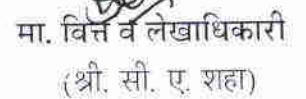 मा. वित्त व लेखाधिकारी
(श्री. सी. ए. शहा)